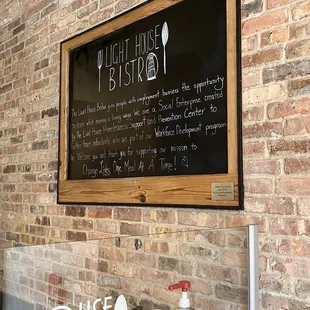 LIGHT HOUSE
BISTRO
The Light House Bistro gives people with employment barriers the opportunity
to earn money while in training. We are a Social Enterprise created
by The Light House Homelessness Support and Prevention Center to
further individuals who are part of our Workforce Development program
We Welcome you and thank you for supporting our mission to
Change Lives One Meal At A Time!
USE